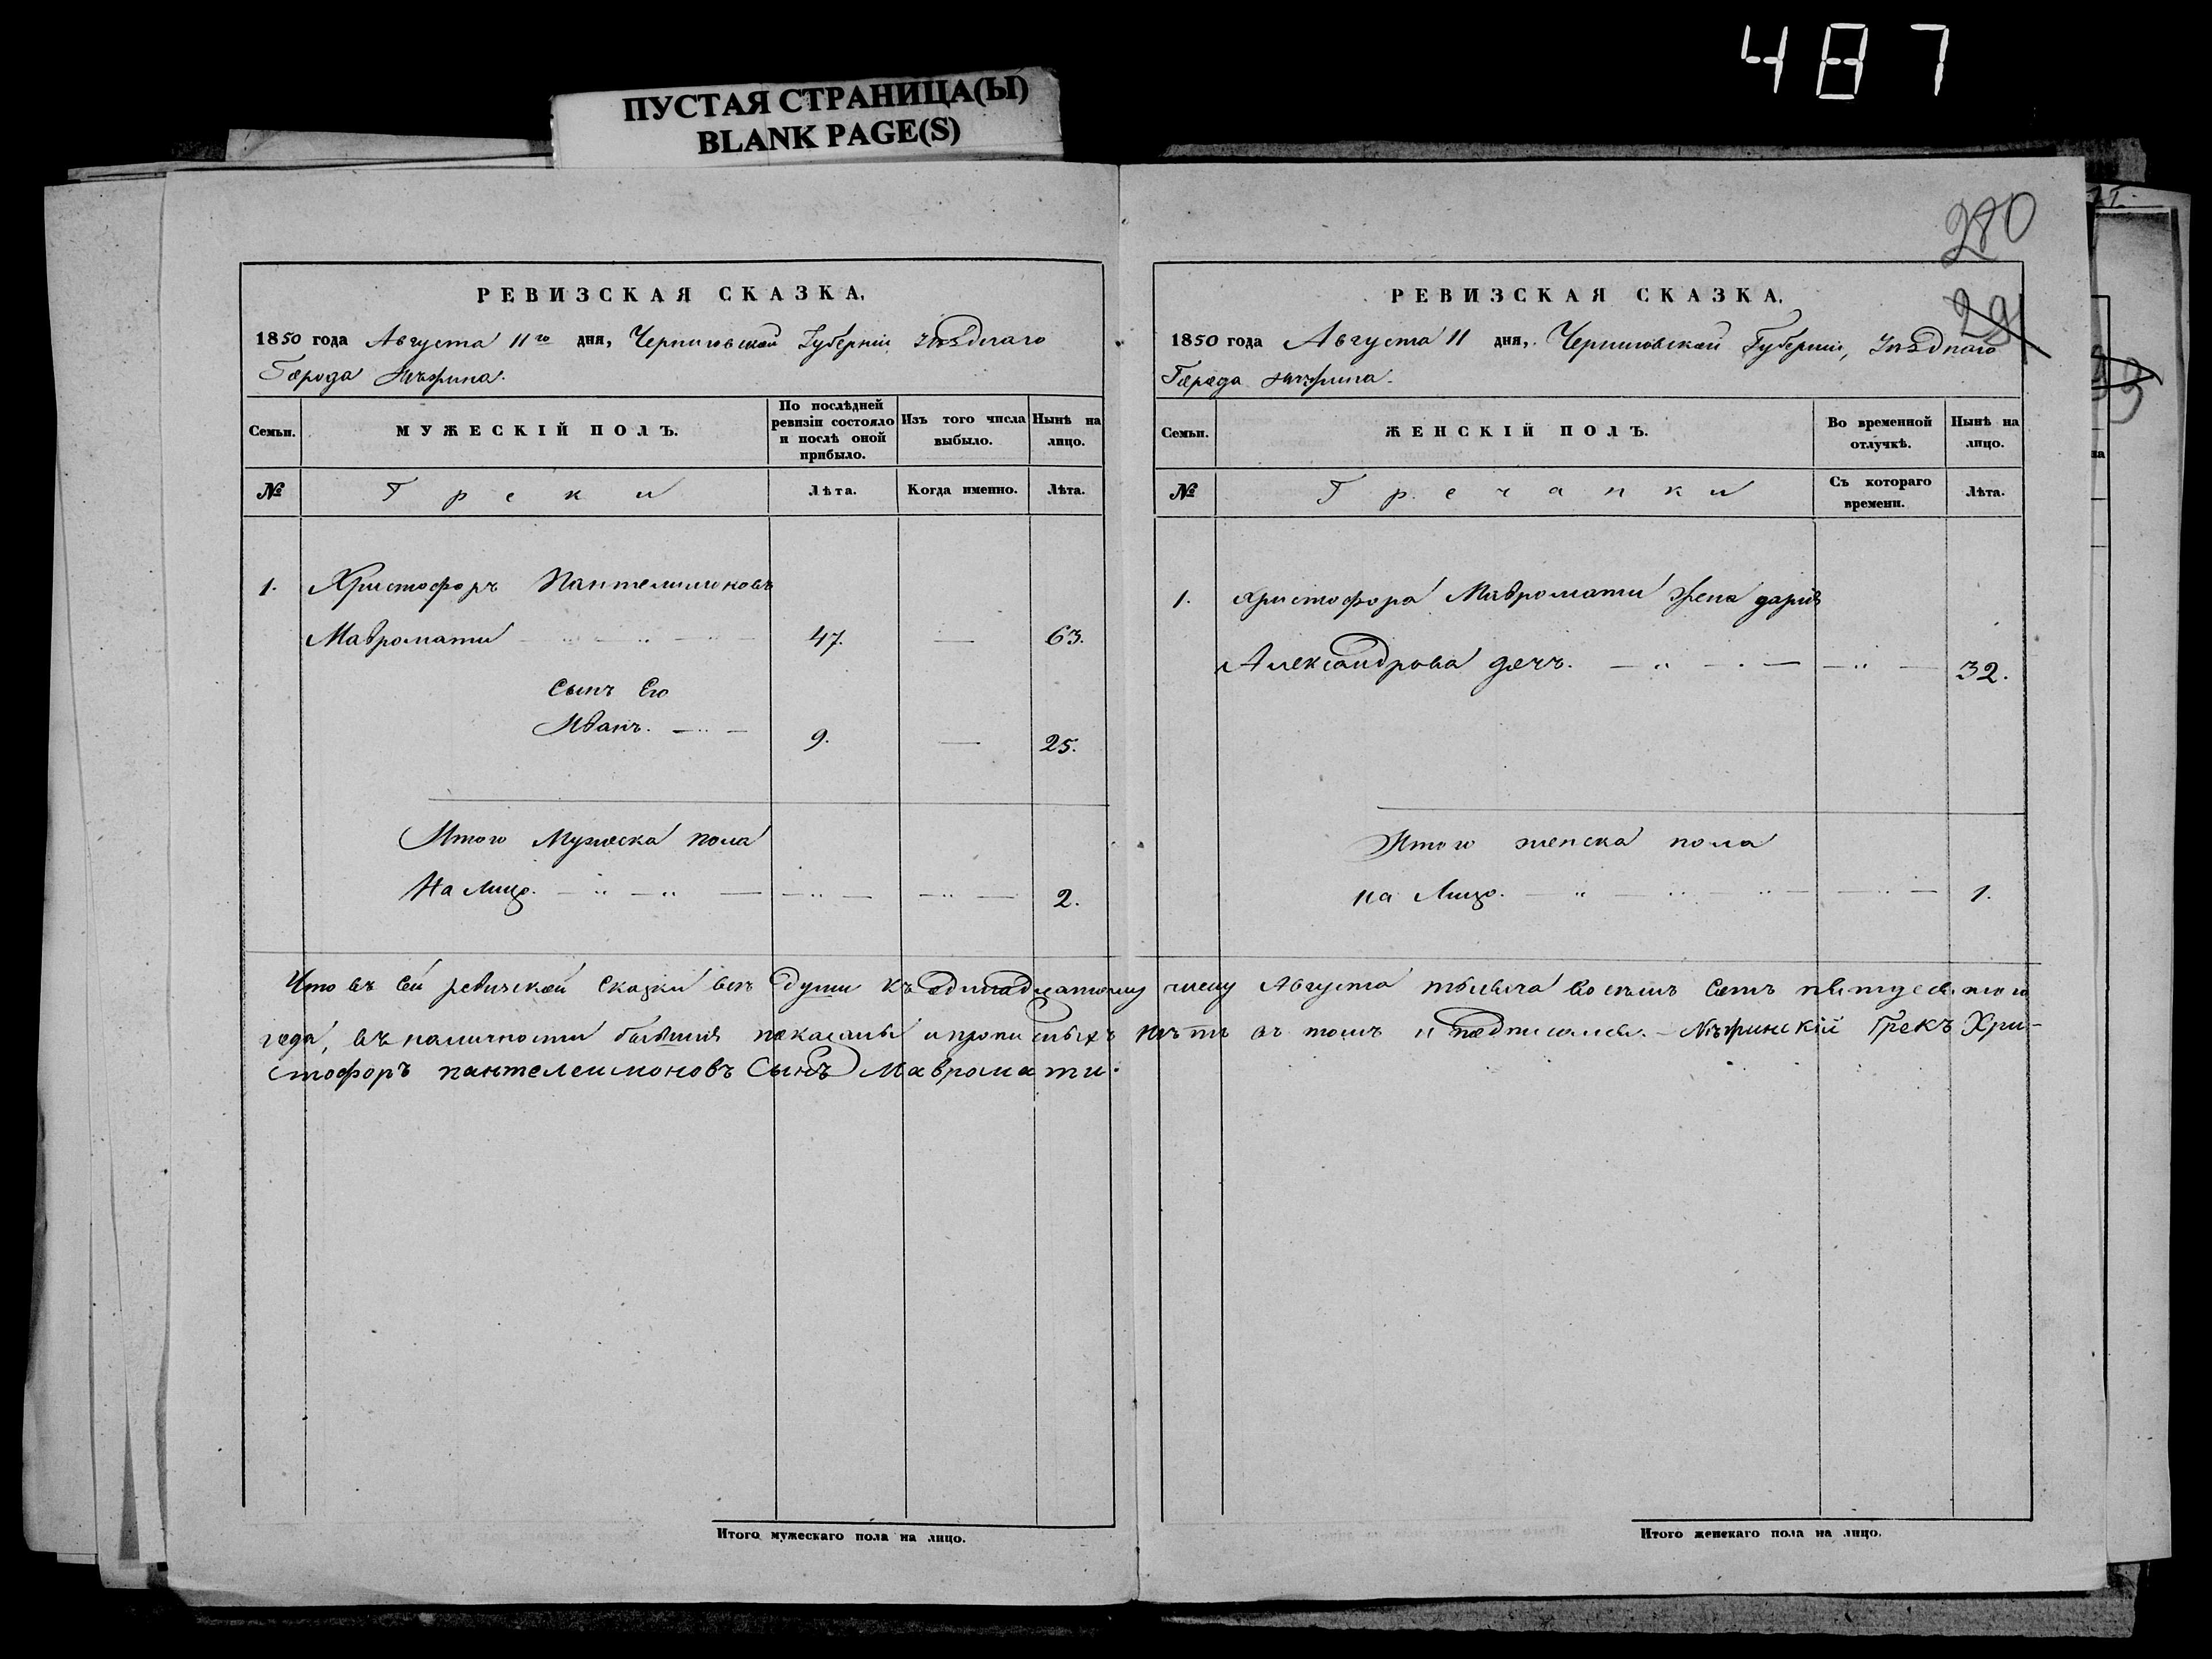 487
ПУСТАЯ СТРАНИЦА(Ы)
BLANK PAGE(S)
280
29
РЕВИЗСКАЯ СКАЗКА,
1850 года Августа 11го дня, Черниговской Губерніи уѣзднаго
Города Нѣжина.
Семьи.
МУЖЕСКІЙ ПОЛЪ.
По послѣдней ревизіи состояло и послѣ оной прибыло.
Изъ того числа выбыло.
Нынѣ на лицо.
№
Греки
Лѣта.
Когда именно.
Лѣта.
1. Христофоръ Пантелимоновъ
Мавромати 47. — 63.
Сынъ Его
Иванъ. 9. — 25.
Итого Мужеска пола
На Лицо. 2.
РЕВИЗСКАЯ СКАЗКА.
1850 года Августа 11 дня, Черниговской Губерніи, Уѣзднаго
Города Нѣжина.
Семьи.
ЖЕНСКІЙ ПОЛЪ.
Во временной отлучкѣ.
Нынѣ на лицо.
№
Гречанки
Съ котораго времени.
Лѣта.
1. Христофора Мавромати Жена дарія
Александрова дочь. 32.
Итого женска пола
на Лицо. 1.
Что въ сей ревизской Сказки всѣ души къ одинадцатому числу Августа тысяча восемь сотъ пятдесятого
года, въ наличности бывшия показаны и прописныхъ нѣтъ въ томъ и подписался. - Нѣжинскій Грекъ Хри-
стофоръ пантелеимоновъ Сынъ Мавромати.
Итого мужескаго пола на лицо.
Итого женскаго пола на лицо.